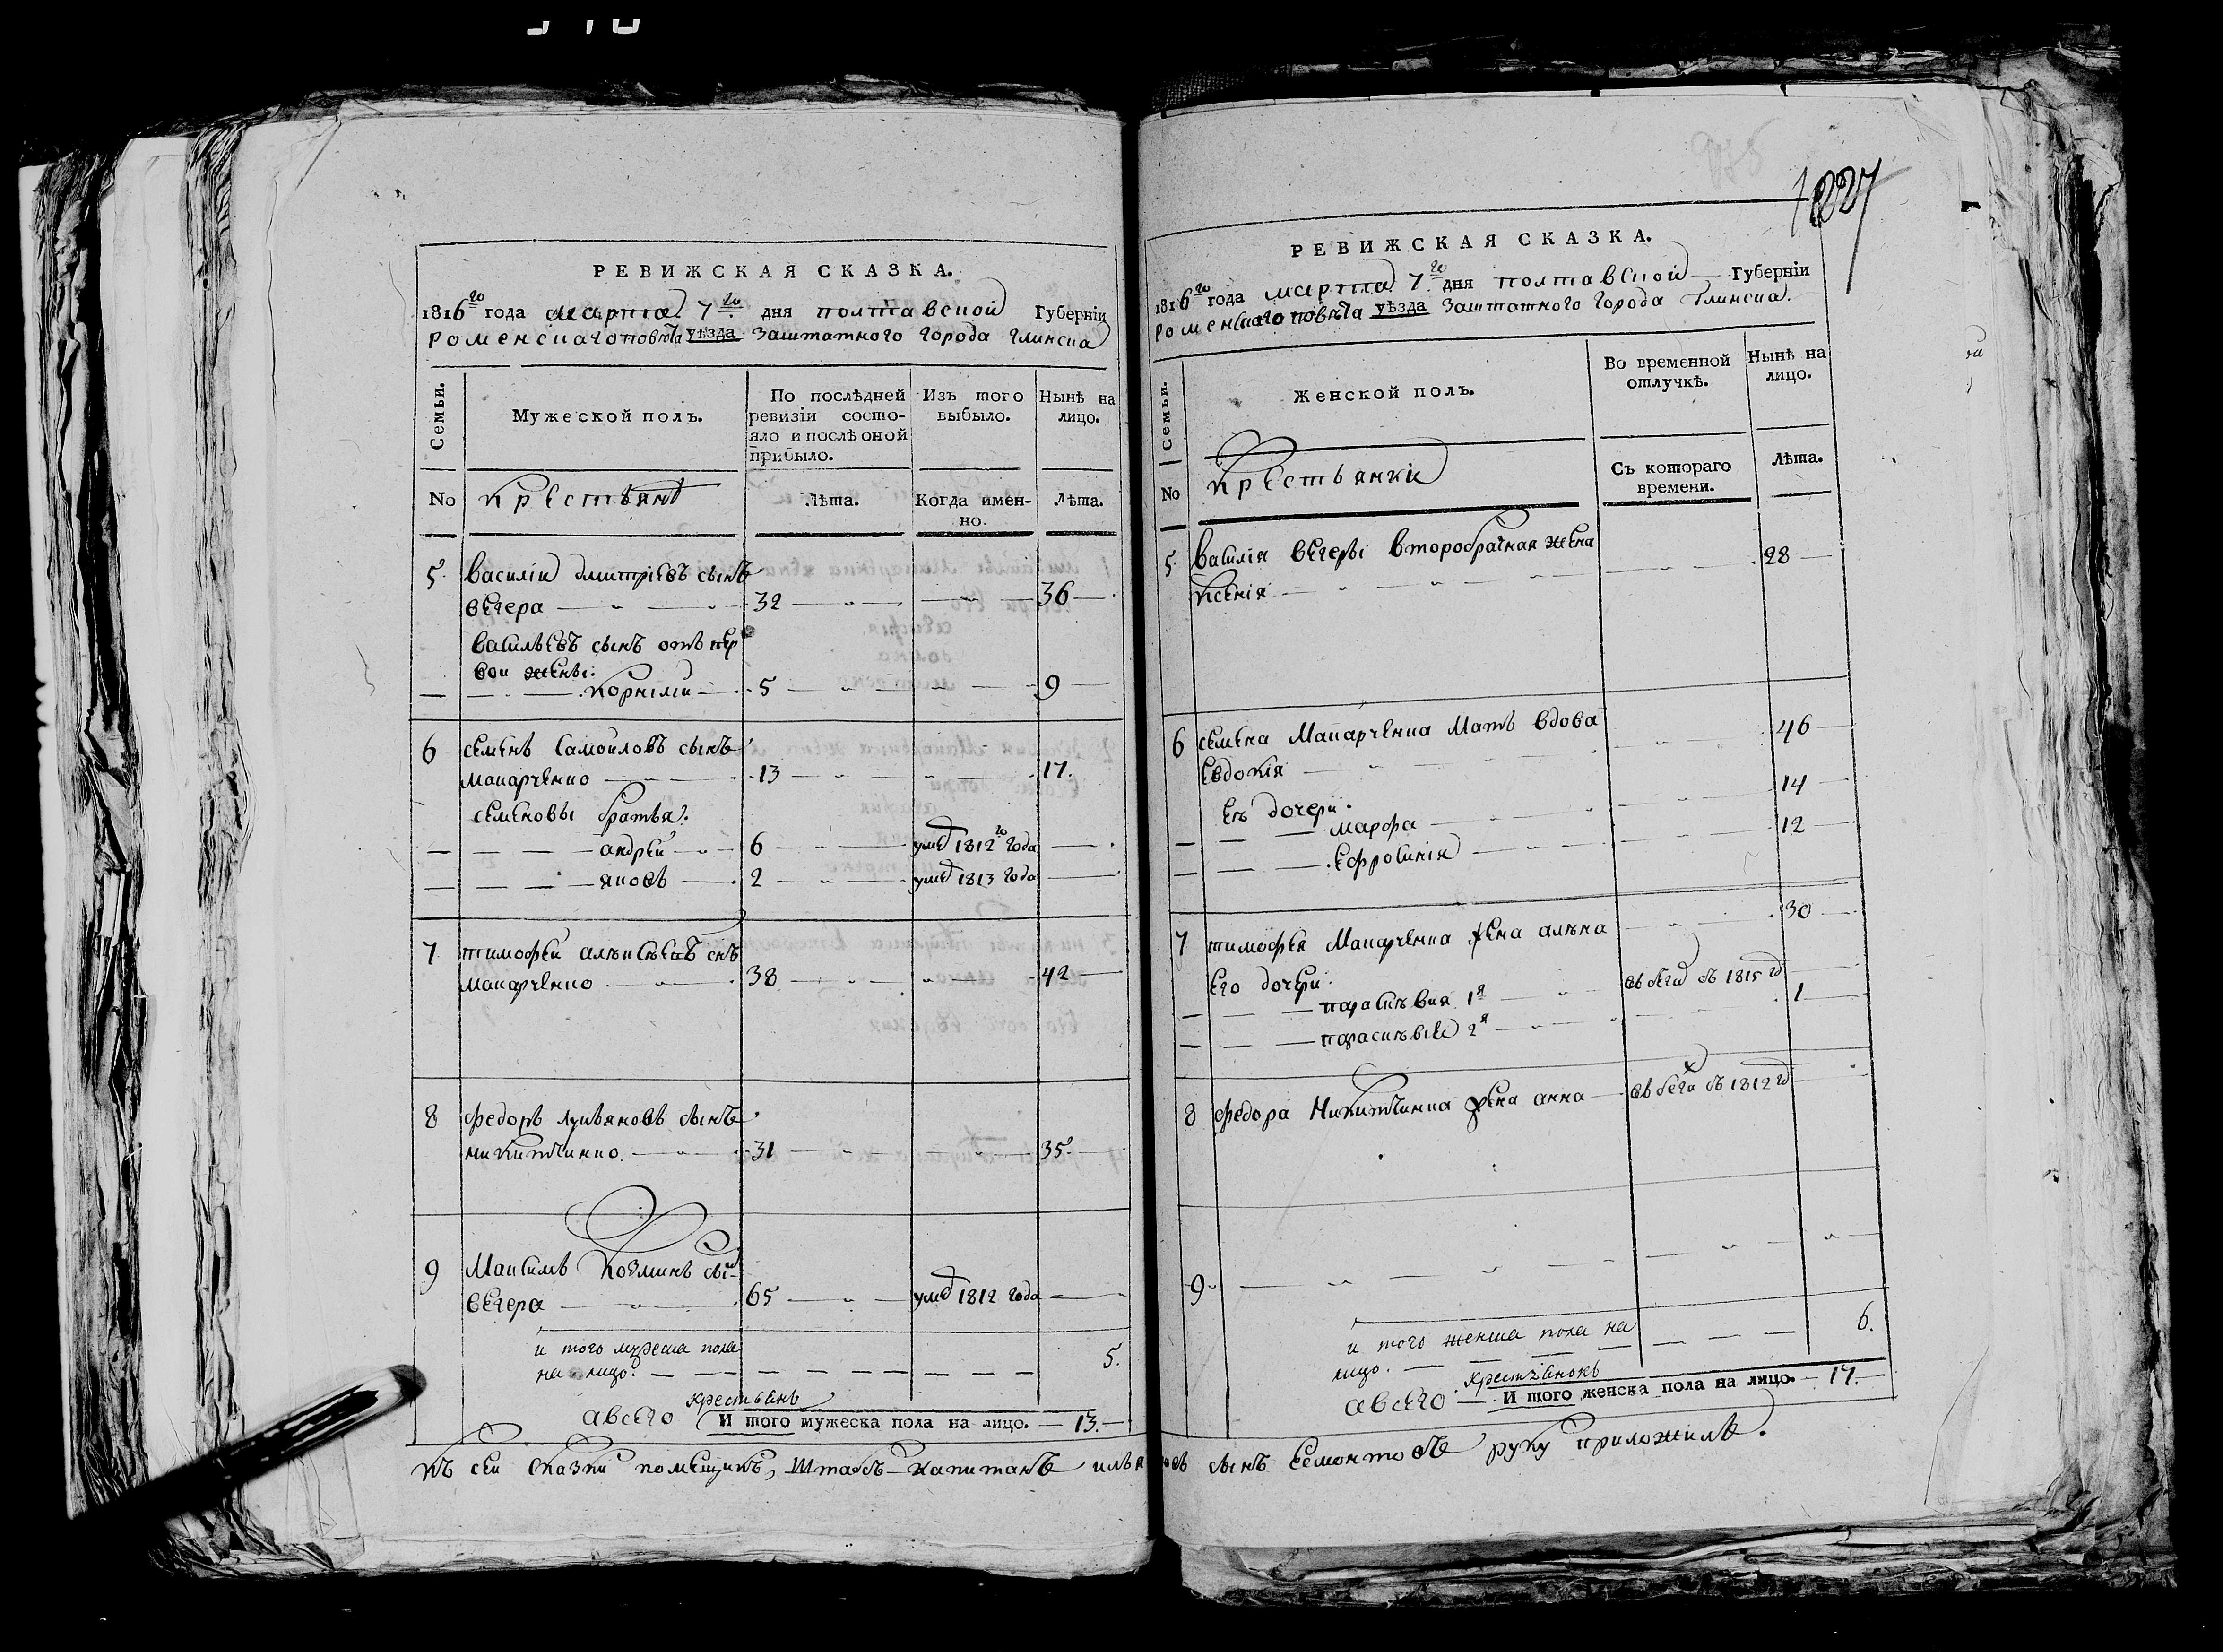 1227
РЕВИЖСКАЯ СКАЗКА.
1816го года марта 7го дня полтавской Губерніи
Роменскаго повѣта уѣзда Заштатного города Глинска
Семьи.
Мужеской полъ.
По послѣдней ревизіи состо-
яло и послѣ оной
прибыло.
Изъ того
выбыло.
Нынѣ на
лицо.
No
крестьянѣ
Лѣта.
Когда имен-
но.
Лѣта.
5 Василій дмитріевъ сынъ
Вечера 32 36
васильевъ сынъ отъ пер
вои жены:
корнилій 5 9
6 семенъ Самойловъ сынъ
макарченко 13 17.
семеновы братья:
андрей 6 умре 1812го года
яковъ 2 умре 1813 года
7 тимофей алексѣевъ снъ
макарченко 38 42
8 федоръ лукьяновъ сынъ
никитченко 31 35
9 Максимъ Козминъ сы
Вечера 65 умре 1812 года
и того мужеска пола
на лицо 5.
крестьянъ
а всего И того мужеска пола на лицо. 13.
РЕВИЖСКАЯ СКАЗКА.
1816го года марта 7го дня полтавской Губерніи
Роменскаго повѣта уѣзда Заштатного города Глинска.
Семьи.
Женской полъ.
Во временной
отлучкѣ.
Нынѣ на
лицо.
No
крестьянки
Съ котораго
времени.
Лѣта.
5 василія вечеры второбрачная жена
Ксенія 28
6 семена Макарченка Мать вдова
Евдокія 46
Еѣ дочери:
марфа 14
Ефросинія 12
7 тимофея Макарченка жена алена 30
Его дочери:
параскѣвия 1я въ бегах съ 1815 го
параскѣвія 2я 1
8 федора Никитченка жена анна въ бегах съ 1812 го
9
и того женска пола на
лицо. 6.
крестьянокъ
а всего И того женска пола на лицо. 17.
Къ сей сказки помещикъ, Штабсъ-капитанъ илья сынъ руку приложилъ.